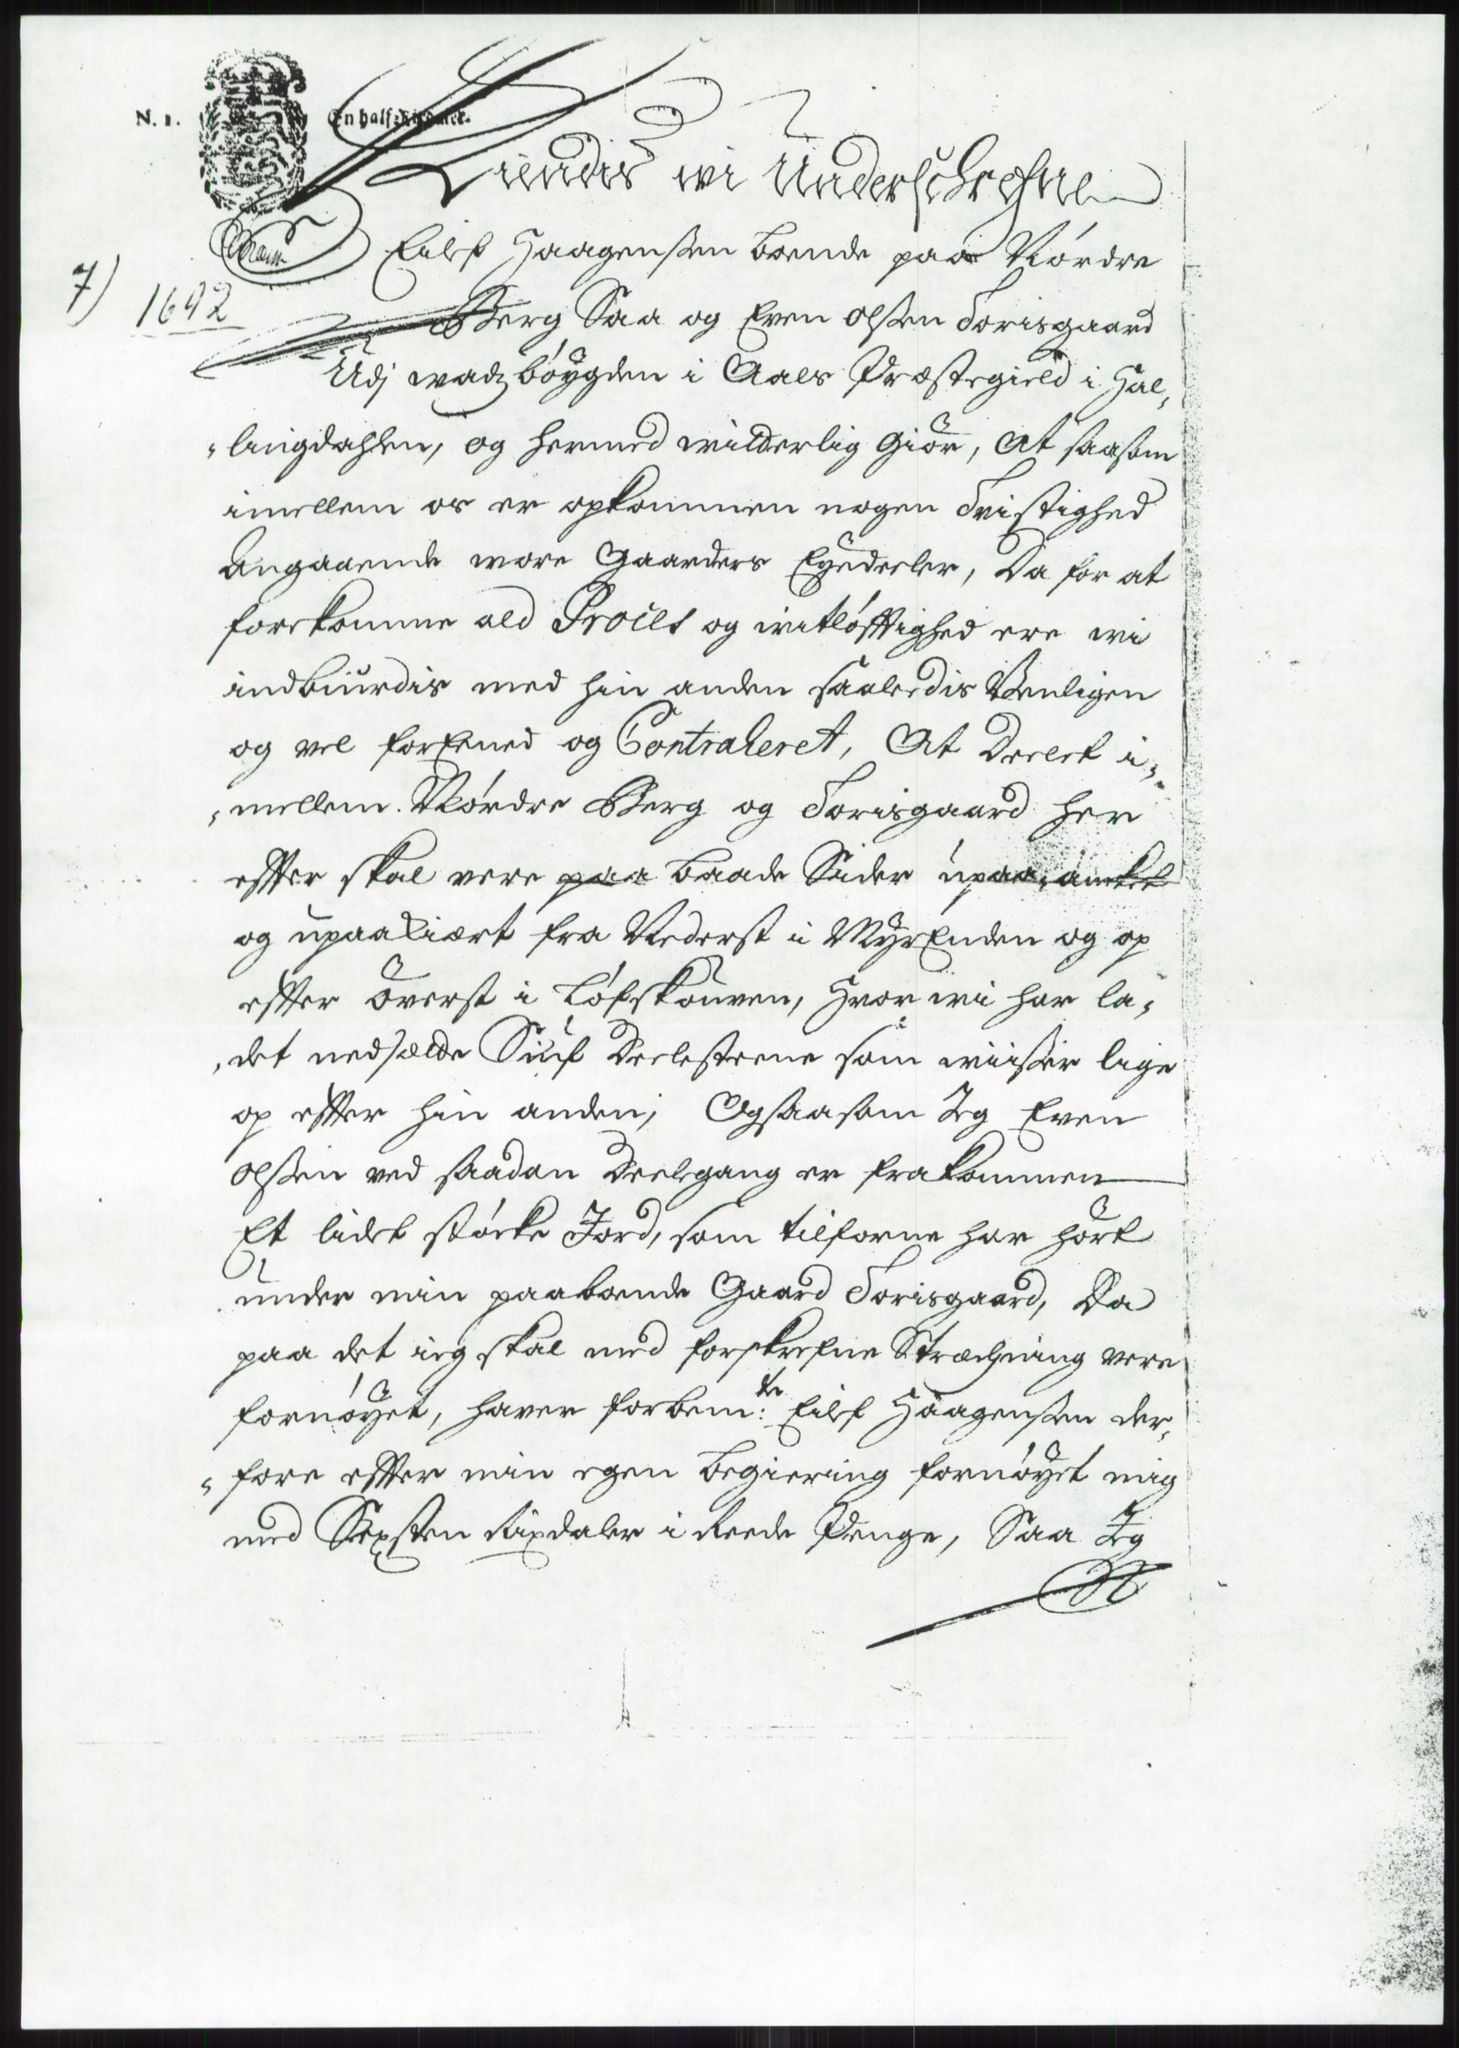 N. 1.
En half
Kiendis wi Underschrefne
7) 1692
Eilf Haagensøn boende paa Nórdre
Berg Saa og Even Olsøn Torisgaard
Udj wadzbóygden i Aals Præstegield i Hal„
„lingdahlen, og hermed witterlig Giör, At saasom
imellem os er opkommen nogen Tvistighed
Angaaende wore Gaarders Eyedeeler, Da for at
forekomme ald Proces og witlófftighed ere wi
indbiurdis med hin anden saaledis Venligen
og vel forEened og Contraheret, At Deelet i„
„mellem Nórdre Berg og Torisgaard her
effter skal vere paa baade Sider upaa-anket
og upaakiært fra Nederst i MyrEnden og op
effter överst i Lófskouven, Hvor wi har la„
„det nedsælde Siuf Deelesteene som wiiser lige
op effter hin anden; Og saasom Jeg Even
Olsøn ved saadan Deelegang er frakommen
Et lidet stócke Jord, som tilforne har hört
under min paaboende Gaard Torisgaard, Da
paa det ieg skal med forskrefne Strechning vere
fornóyet, haver forbem:te Eilf Haagensøn der„
„fore effter min egen begiering fornóyet mig
med Sexsten Rixdaler i Reede Penge, Saa Jeg